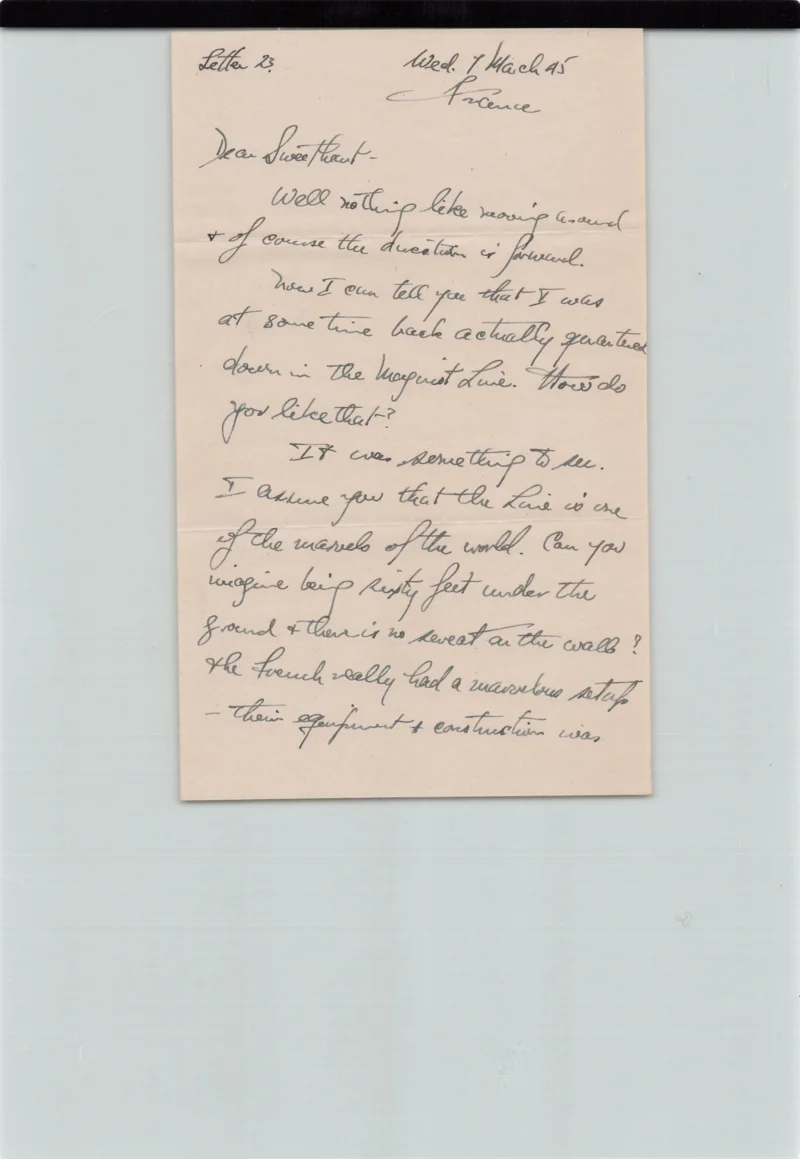 Letter 23.
Wed. 7 March 45
France
Dear Sweetheart -
Well nothing like moving around
+ of course the direction is forward.
Now I can tell you that I was
at some time back actually quartered
down in the Maginot Line. How do
you like that?
It was something to see.
I assure you that the Line is one
of the marvels of the world. Can you
imagine being sixty feet under the
ground + there is no sweat on the walls?
The French really had a marvelous setup
- their equipment + construction was